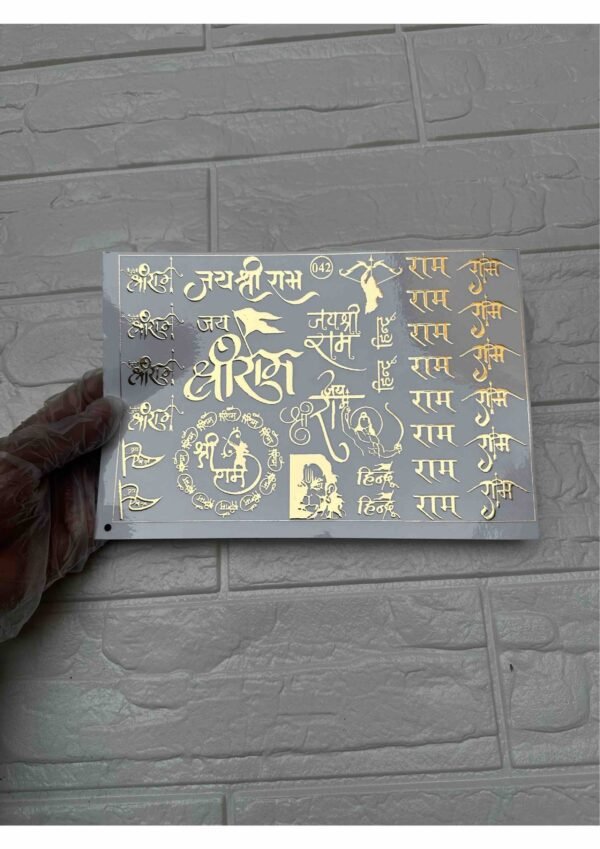 श्रीराम
जय श्री राम
042
राम
राम
श्रीराम
जय
श्रीराम
जय श्री
राम
हिन्दू
राम
राम
श्रीराम
हिन्दू
राम
राम
श्रीराम
जय
श्री राम
राम
राम
श्री
राम
राम
राम
हिन्दू
राम
हिन्दू
राम
राम